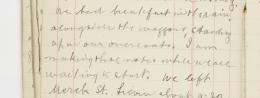 We had breakfast in the rain,
alongside the waggons, standing
up in our overcoats. I am
making these notes while we are
waiting to start. We left
Merck St. Lievin about 9.30